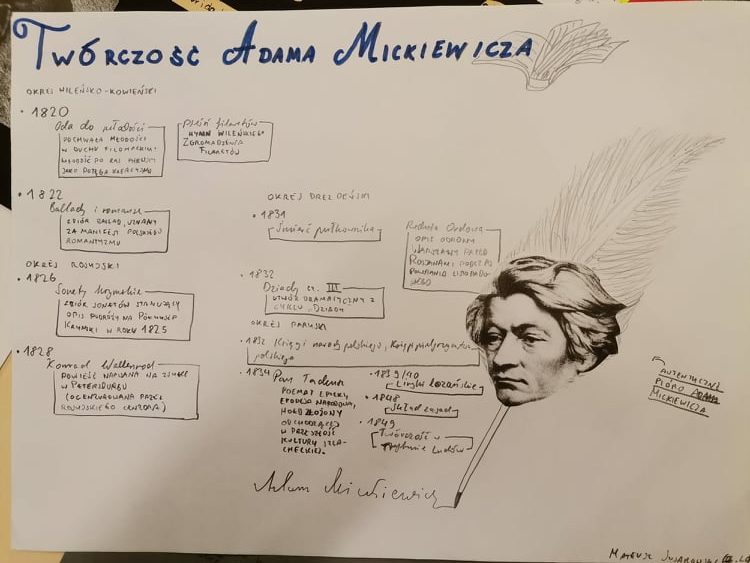 TWÓRCZOŚĆ ADAMA MICKIEWICZA
OKRES WILEŃSKO-KOWIEŃSKI
1820
Oda do młodości
POCHWAŁA MŁODOŚCI
W DUCHU FILOMACKIM
MŁODZIEŻ PO RAZ PIERWSZY
JAKO POTĘGA
Pieśń filaretów
HYMN WILEŃSKIEGO
ZGROMADZENIA
FILARETÓW
1822
Ballady i romanse
ZBIÓR BALLAD, UZNANY
ZA MANIFEST POLSKIEGO
ROMANTYZMU
OKRES ROSYJSKI
1826
Sonety krymskie
ZBIÓR SONETÓW STANOWIĄCY
OPIS PODRÓŻY NA PÓŁWYSEP
KRYMSKI W ROKU 1825
1828
Konrad Wallenrod
POWIEŚĆ NAPISANA NA ZSYŁCE
W PETERSBURGU
(OCENZUROWANA PRZEZ
ROSYJSKIEGO CENZORA)
OKRES DREZDEŃSKI
1831
Śmierć pułkownika
Reduta Ordona
OPIS OBRONY
WARSZAWY PRZED
ROSJANAMI PODCZAS
POWSTANIA LISTOPADO
WEGO
1832
Dziady cz. III
UTWÓR DRAMATYCZNY Z
CYKLU „DZIADY
OKRES PARYSKI
1832 Księgi narodu polskiego i Księgi pielgrzymstwa
polskiego
1834 Pan Tadeusz
POEMAT EPICKI,
EPOPEJA NARODOWA,
HOŁD ZŁOŻONY
ODCHODZĄCEJ
W PRZESZŁOŚĆ
KULTURY SZLA-
CHECKIEJ.
1839/40
Liryki lozańskie
1848
Skład zasad
1849
Twórczość w
Trybunie Ludów
Adam Mickiewicz
AUTENTYCZNE
PIÓRO ADAMA
MICKIEWICZA
MATEUSZ